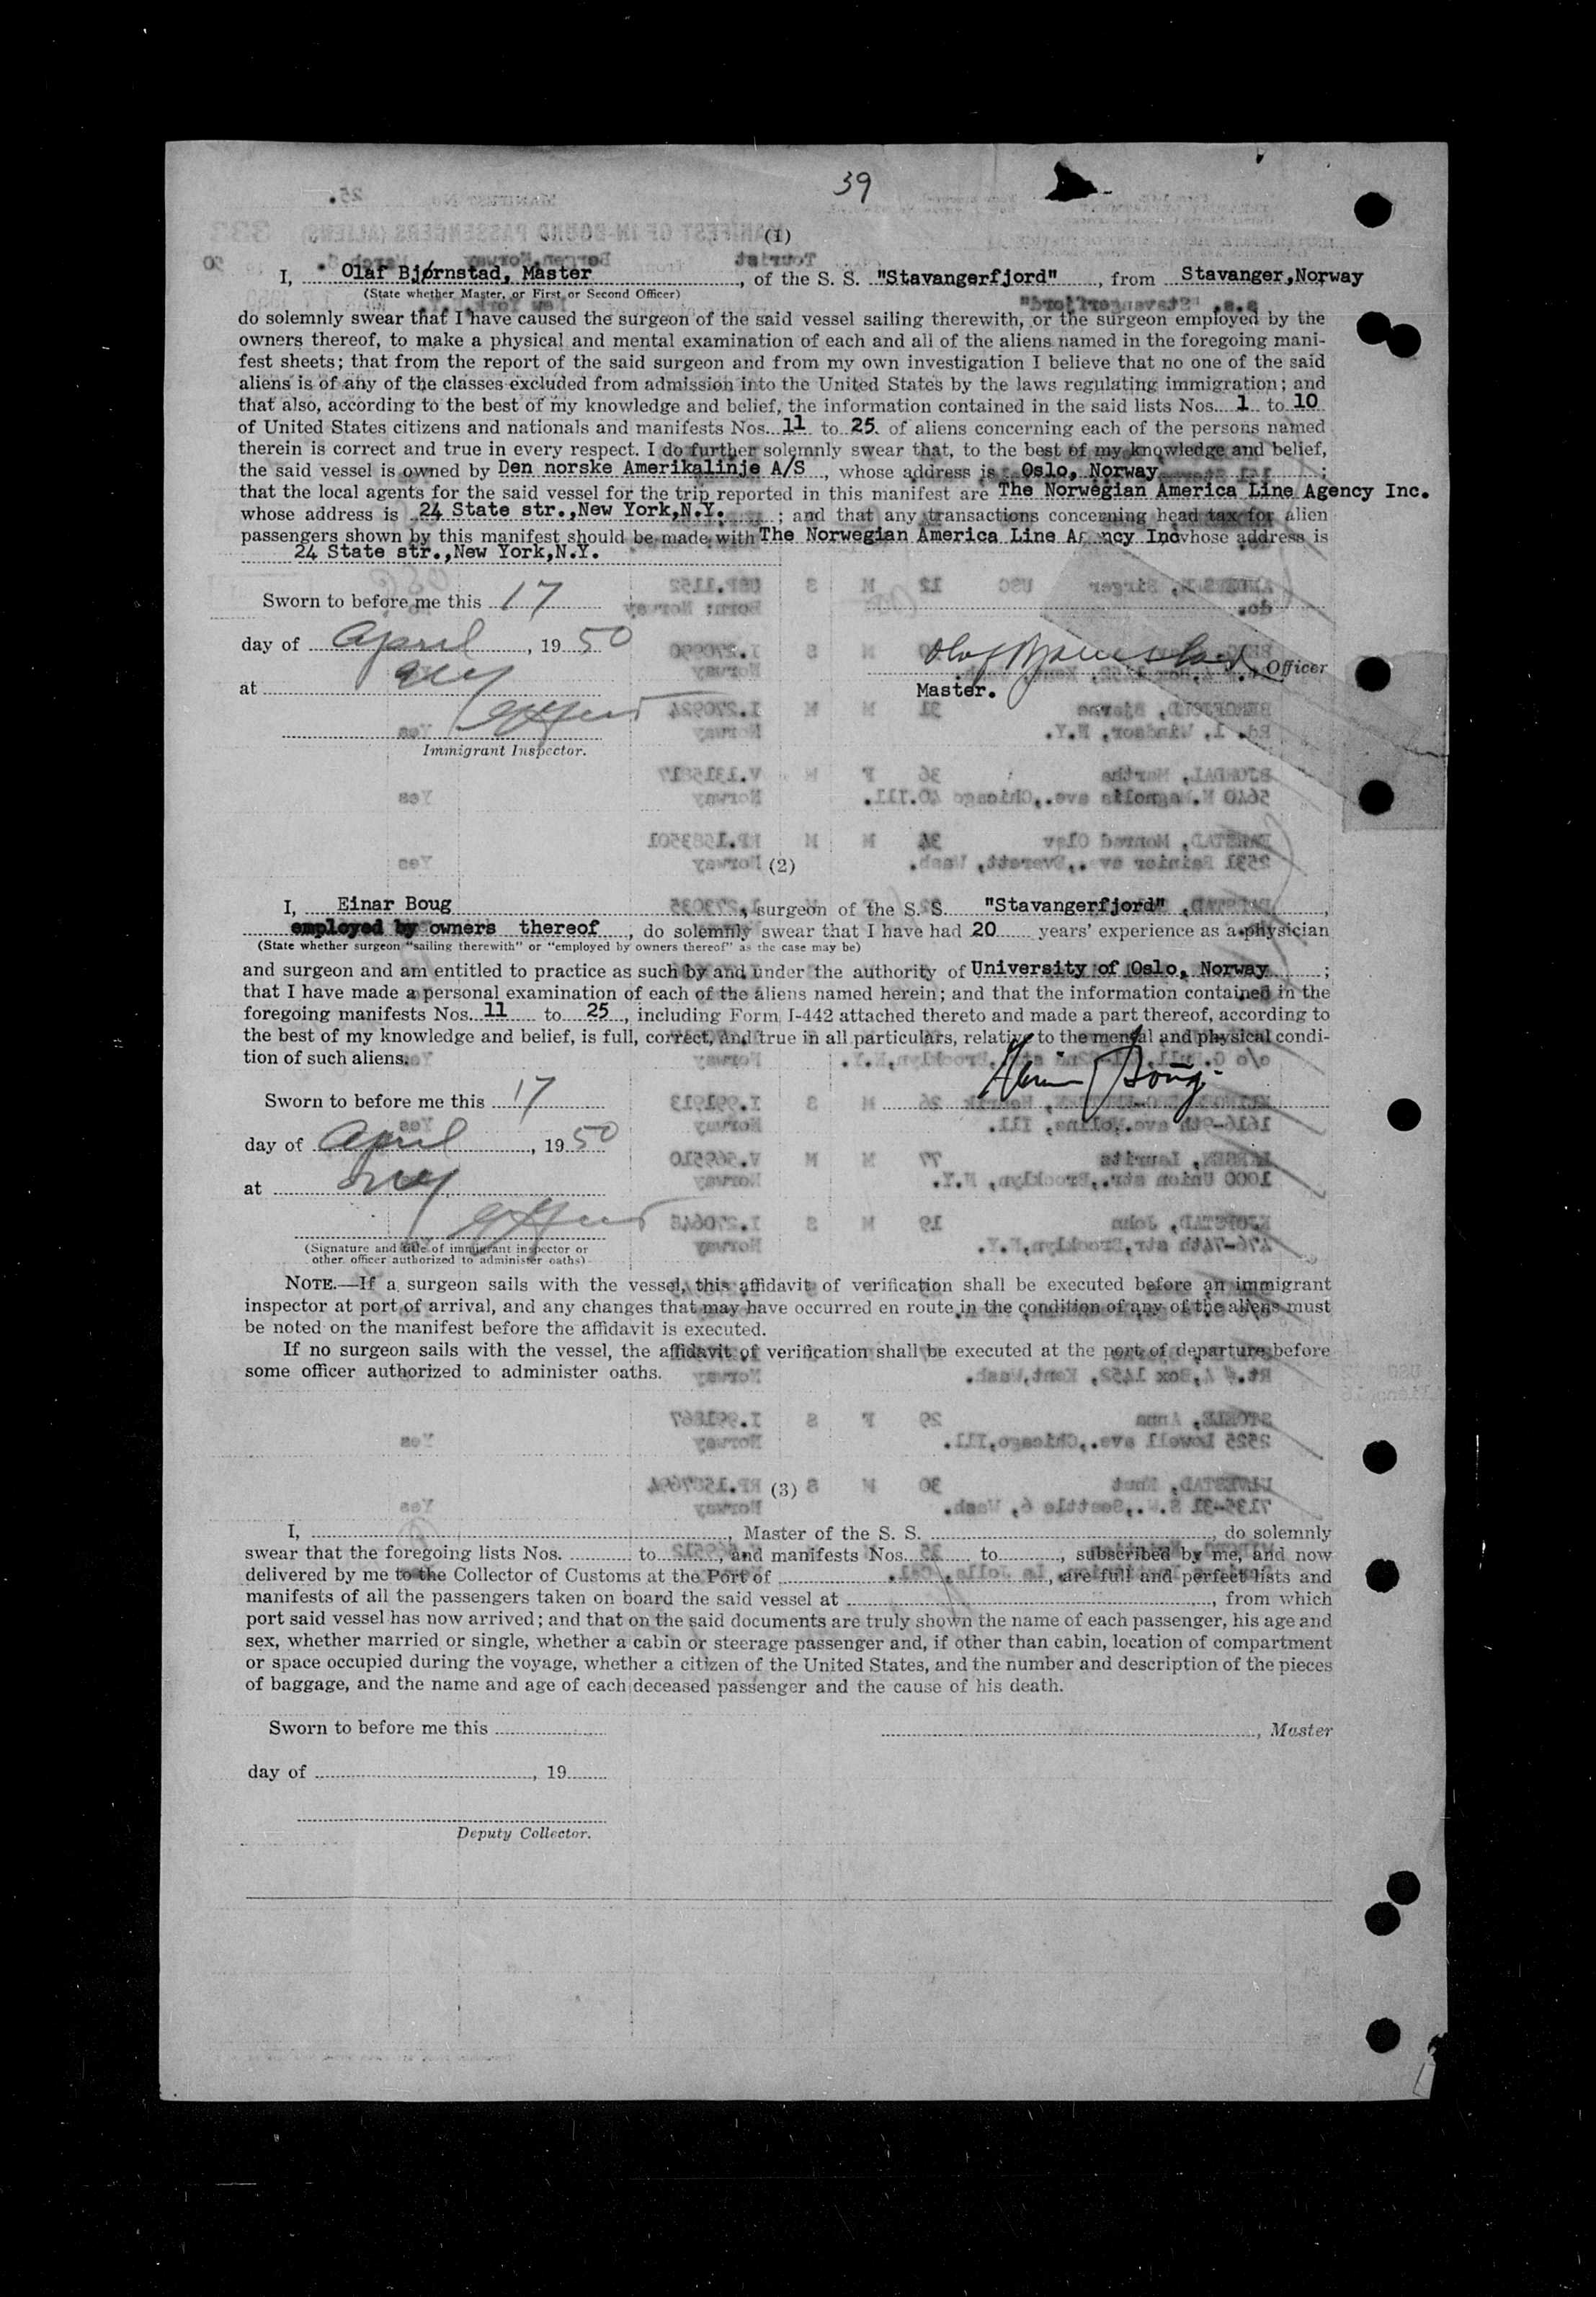 39
(1)
I, Olaf Bjørnstad, Master, of the S. S. "Stavangerfjord", from Stavanger,Norway
(State whether Master, or First or Second Officer)
do solemnly swear that I have caused the surgeon of the said vessel sailing therewith, or the surgeon employed by the
owners thereof, to make a physical and mental examination of each and all of the aliens named in the foregoing mani-
fest sheets; that from the report of the said surgeon and from my own investigation I believe that no one of the said
aliens is of any of the classes excluded from admission into the United States by the laws regulating immigration; and
that also, according to the best of my knowledge and belief, the information contained in the said lists Nos. 1 to 10
of United States citizens and nationals and manifests Nos. 11 to 25. of aliens concerning each of the persons named
therein is correct and true in every respect. I do further solemnly swear that, to the best of my knowledge and belief,
the said vessel is owned by Den norske Amerikalinje A/S, whose address is Oslo, Norway;
that the local agents for the said vessel for the trip reported in this manifest are The Norwegian America Line Agency Inc.
whose address is 24 State str.,New York,N.Y.; and that any transactions concerning head tax for alien
passengers shown by this manifest should be made with The Norwegian America Line Agency Inc whose address is
24 State str.,New York,N.Y.
Sworn to before me this 17
day of April, 1950
at
Olaf Bjørnstad, Officer
Master.
Immigrant Inspector.
(2)
I, Einar Boug, surgeon of the S. S. "Stavangerfjord",
employed by owners thereof, do solemnly swear that I have had 20 years' experience as a physician
(State whether surgeon "sailing therewith" or "employed by owners thereof" as the case may be)
and surgeon and am entitled to practice as such by and under the authority of University of Oslo, Norway;
that I have made a personal examination of each of the aliens named herein; and that the information contained in the
foregoing manifests Nos. 11 to 25, including Form I-442 attached thereto and made a part thereof, according to
the best of my knowledge and belief, is full, correct, and true in all particulars, relative to the mental and physical condi-
tion of such aliens.
Einar Boug
Sworn to before me this 17
day of April, 1950
at
(Signature and title of immigrant inspector or
other officer authorized to administer oaths)
NOTE.—If a surgeon sails with the vessel, this affidavit of verification shall be executed before an immigrant
inspector at port of arrival, and any changes that may have occurred en route in the condition of any of the aliens must
be noted on the manifest before the affidavit is executed.
If no surgeon sails with the vessel, the affidavit of verification shall be executed at the port of departure before
some officer authorized to administer oaths.
(3)
I, , Master of the S. S. , do solemnly
swear that the foregoing lists Nos. to , and manifests Nos. to , subscribed by me, and now
delivered by me to the Collector of Customs at the Port of , are full and perfect lists and
manifests of all the passengers taken on board the said vessel at , from which
port said vessel has now arrived; and that on the said documents are truly shown the name of each passenger, his age and
sex, whether married or single, whether a cabin or steerage passenger and, if other than cabin, location of compartment
or space occupied during the voyage, whether a citizen of the United States, and the number and description of the pieces
of baggage, and the name and age of each deceased passenger and the cause of his death.
Sworn to before me this
, Master
day of , 19
Deputy Collector.